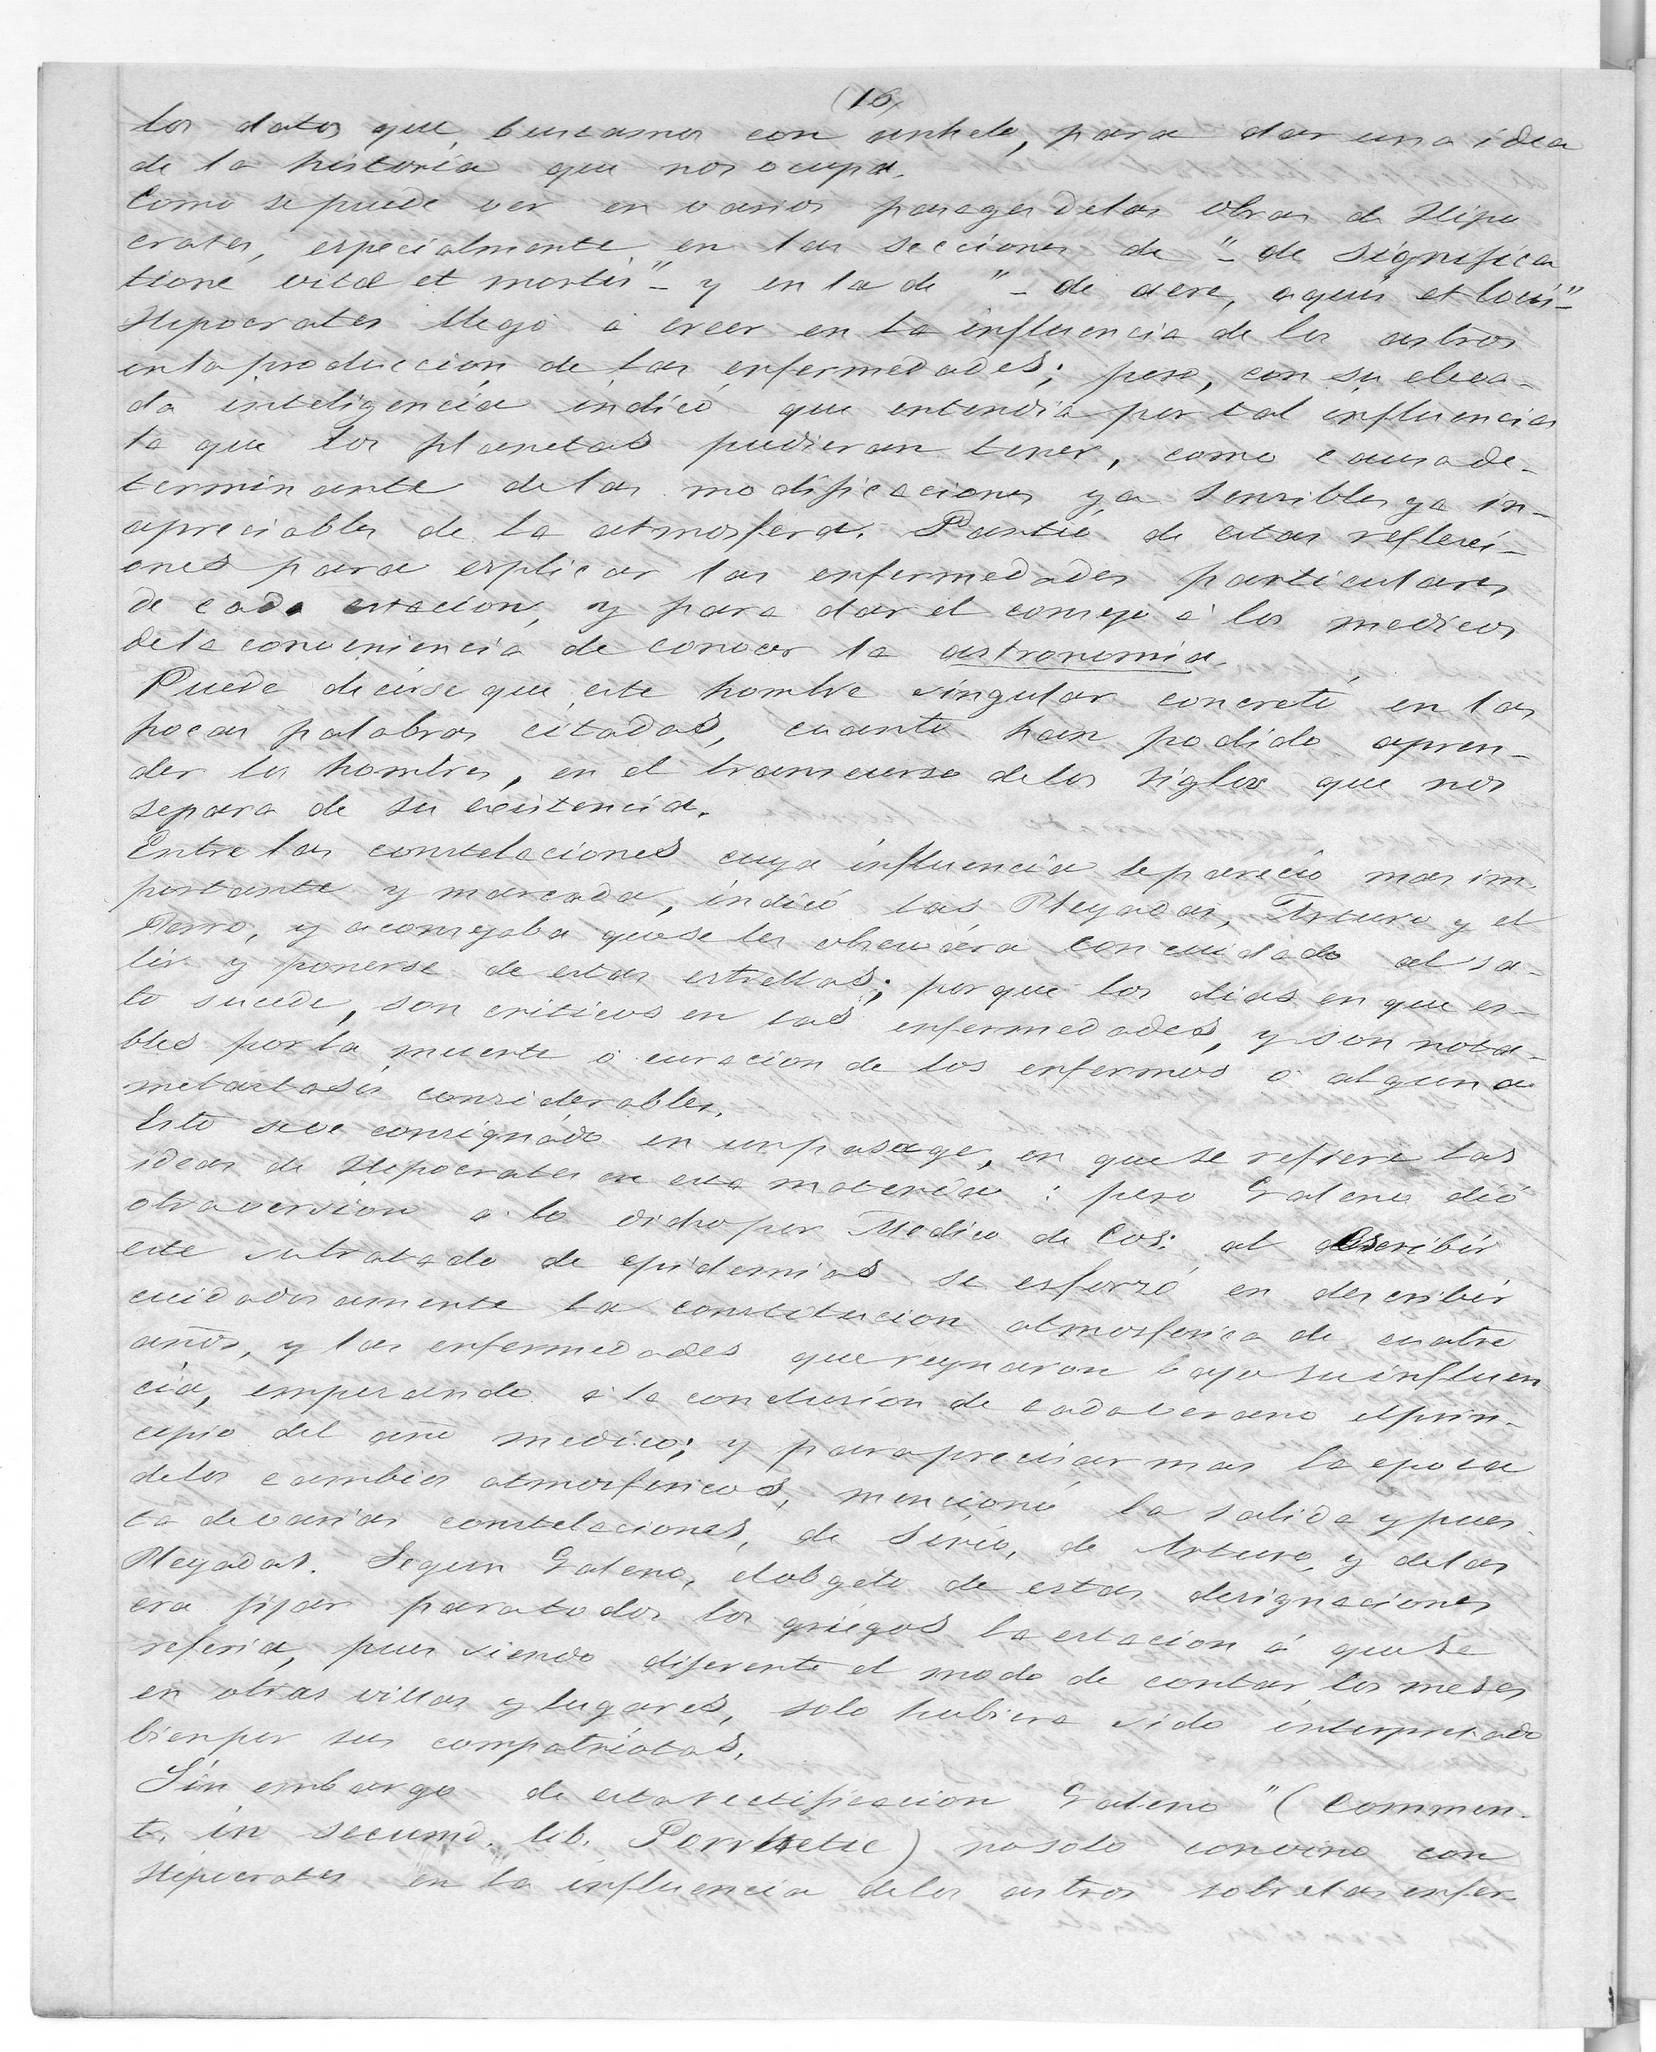 (16)
los datos que buscamos con anhelo, para dar una idea
de la historia que nos ocupa.
Como se puede ver en varios pasages de las obras de Hipo
crates, especialmente en las secciones de "– de significa
tione vitæ et mortis" – y en la de "– de aere, aquis et locis" –
Hipocrates llegó á creer en la influencia de los astros
en la produccion de las enfermedades; pero, con su eleva-
da inteligencia indicó que entendia por tal influencia
la que los planetas pudieran tener, como causa de-
terminante de las modificaciones ya sensibles ya in-
apreciables de la atmosfera. Partió de estas reflexi-
ones para esplicar las enfermedades particulares
de cada estacion, y para dar el consejo á los medicos
de la conveniencia de conocer la astronomia.
Puede decirse que este hombre singular concretó en las
pocas palabras citadas, cuanto han podido apren-
der los hombres, en el transcurso de los siglos que nos
separa de su existencia.
Entre las constelaciones cuya influencia le pareció mas im-
portante y marcada, indicó las Pleyadas, Arturo y el
Perro, y aconsejaba que se les observára con cuidado al sa-
lir y ponerse de estas estrellas; porque los dias en que es-
to sucede, son criticos en las enfermedades, y son nota-
bles por la muerte ó curacion de los enfermos ó alguna
metastasis considerables.
Esto se ve consignado en un pasage, en que se refiere las
ideas de Hipocrates en esta materia : pero Galeno dió
otra version á lo dicho por Medico de Cos: al escribir
este su tratado de epidemias se esforzó en describir
cuidadosamente la constitucion atmosferica de cuatro
años, y las enfermedades que reynaron bajo su influen
cia, empezando á la conclusion de cada verano el prin-
cipio del año medico; y para precisar mas la epoca
de los cambios atmosfericos, mencionó la salida y pues-
ta de varias constelaciones, de Sirio, de Arturo y de las
Pleyadas. Segun Galeno, el obgeto de estas designaciones
era fijar para todos los griegos la estacion á que se
referia, pues siendo diferente el modo de contar los meses
en otras villas y lugares, solo hubiera sido interpretado
bien por sus compatriotas.
Sin embargo de esta rectificacion Galeno "( Commen-
t. in secund. lib. Porrhetic ) no solo convino con
Hipocrates en la influencia de los astros sobre las enfer-